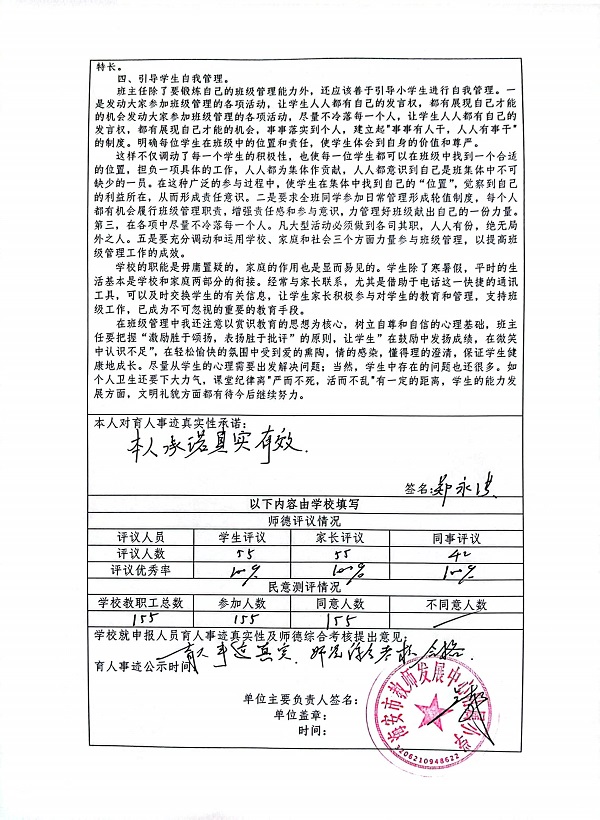 特长。
四、引导学生自我管理。
班主任除了要锻炼自己的班级管理能力外，还应该善于引导小学生进行自我管理。一
是发动大家参加班级管理的各项活动，让学生人人都有自己的发言权，都有展现自己才能
的机会发动大家参加班级管理的各项活动，尽量不冷落每一个人，让学生人人都有自己的
发言权，都有展现自己才能的机会，事事落实到个人，建立起"事事有人干，人人有事干"
的制度。明确每位学生在班级中的位置和责任，使学生体会到自身的价值和尊严。
这样不仅调动了每一个学生的积极性，也使每一位学生都可以在班级中找到一个合适
的位置，担负一项具体的工作，人人都为集体作贡献，人人都意识到自己是班集体中不可
缺少的一员。在这种广泛的参与过程中，使学生在集体中找到自己的"位置"，觉察到自己
的利益所在，从而形成责任意识。二是要求全班同学参加日常管理形成轮值制度，每个人
都有机会履行班级管理职责，增强责任感和参与意识，力管理好班级献出自己的一份力量。
第三，在各项中尽量不冷落每一个人。凡大型活动必须做到各司其职，人人有份，绝无局
外之人。五是要充分调动和运用学校、家庭和社会三个方面力量参与班级管理，以提高班
级管理工作的成效。
学校的职能是毋庸置疑的，家庭的作用也是显而易见的。学生除了寒暑假，平时的生
活基本是学校和家庭两部分的衔接。经常与家长联系，尤其是借助于电话这一快捷的通讯
工具，可以及时交换学生的有关信息，让学生家长积极参与对学生的教育和管理，支持班
级工作，已成为不可忽视的重要的教育手段。
在班级管理中我还注意以赏识教育的思想为核心，树立自尊和自信的心理基础，班主
任要把握"激励胜于颂扬，表扬胜于批评"的原则，让学生"在鼓励中发扬成绩，在微笑
中认识不足"，在轻松愉快的氛围中受到爱的熏陶，情的感染，懂得理的澄清，保证学生健
康地成长。尽量从学生的心理需要出发解决问题；当然，学生中存在的问题也还很多。如
个人卫生还要下大力气，课堂纪律离"严而不死，活而不乱"有一定的距离，学生的能力发
展方面，文明礼貌方面都有待今后继续努力。
本人对育人事迹真实性承诺：
本人承诺真实有效.
签名：郑永
以下内容由学校填写
师德评议情况
评议人员 学生评议 家长评议 同事评议
评议人数 55 55 42
评议优秀率 100% 100% 100%
民意测评情况
学校教职工总数 参加人数 同意人数 不同意人数
155 155 155 /
学校就申报人员育人事迹真实性及师德综合考核提出意见：
育人事迹真实，师德综合考核合格.
育人事迹公示时间
单位主要负责人签名：
单位盖章：
时间：
海安市教师发展中心附属小学
3206210948622